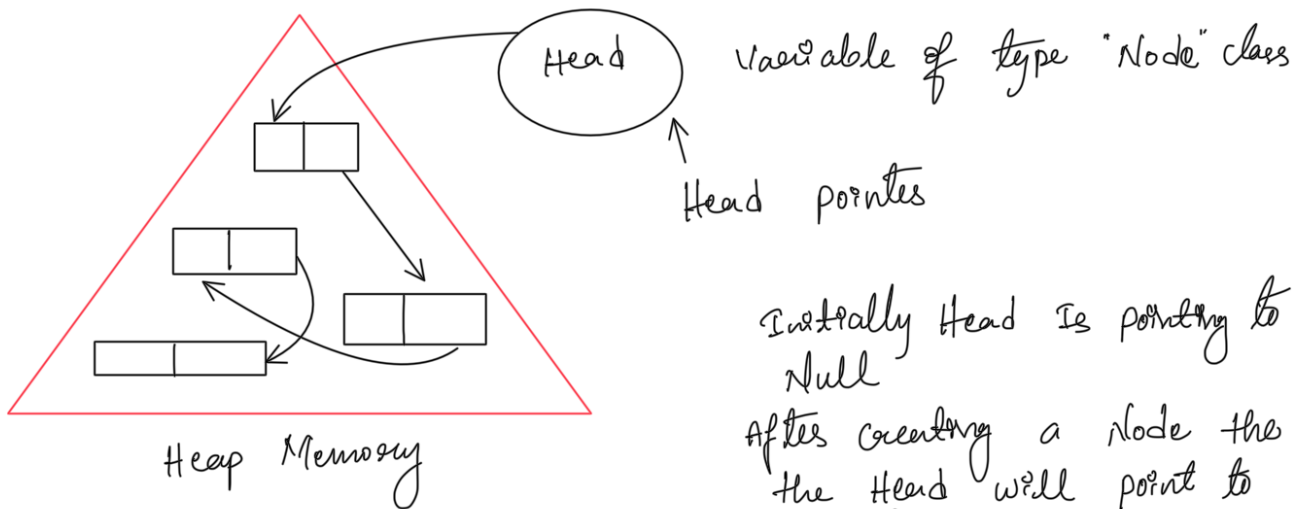 Head
Variable of type "Node" class
Head pointer
Initially Head Is pointing to
Null
After creating a Node the
the Head will point to
Heap Memory